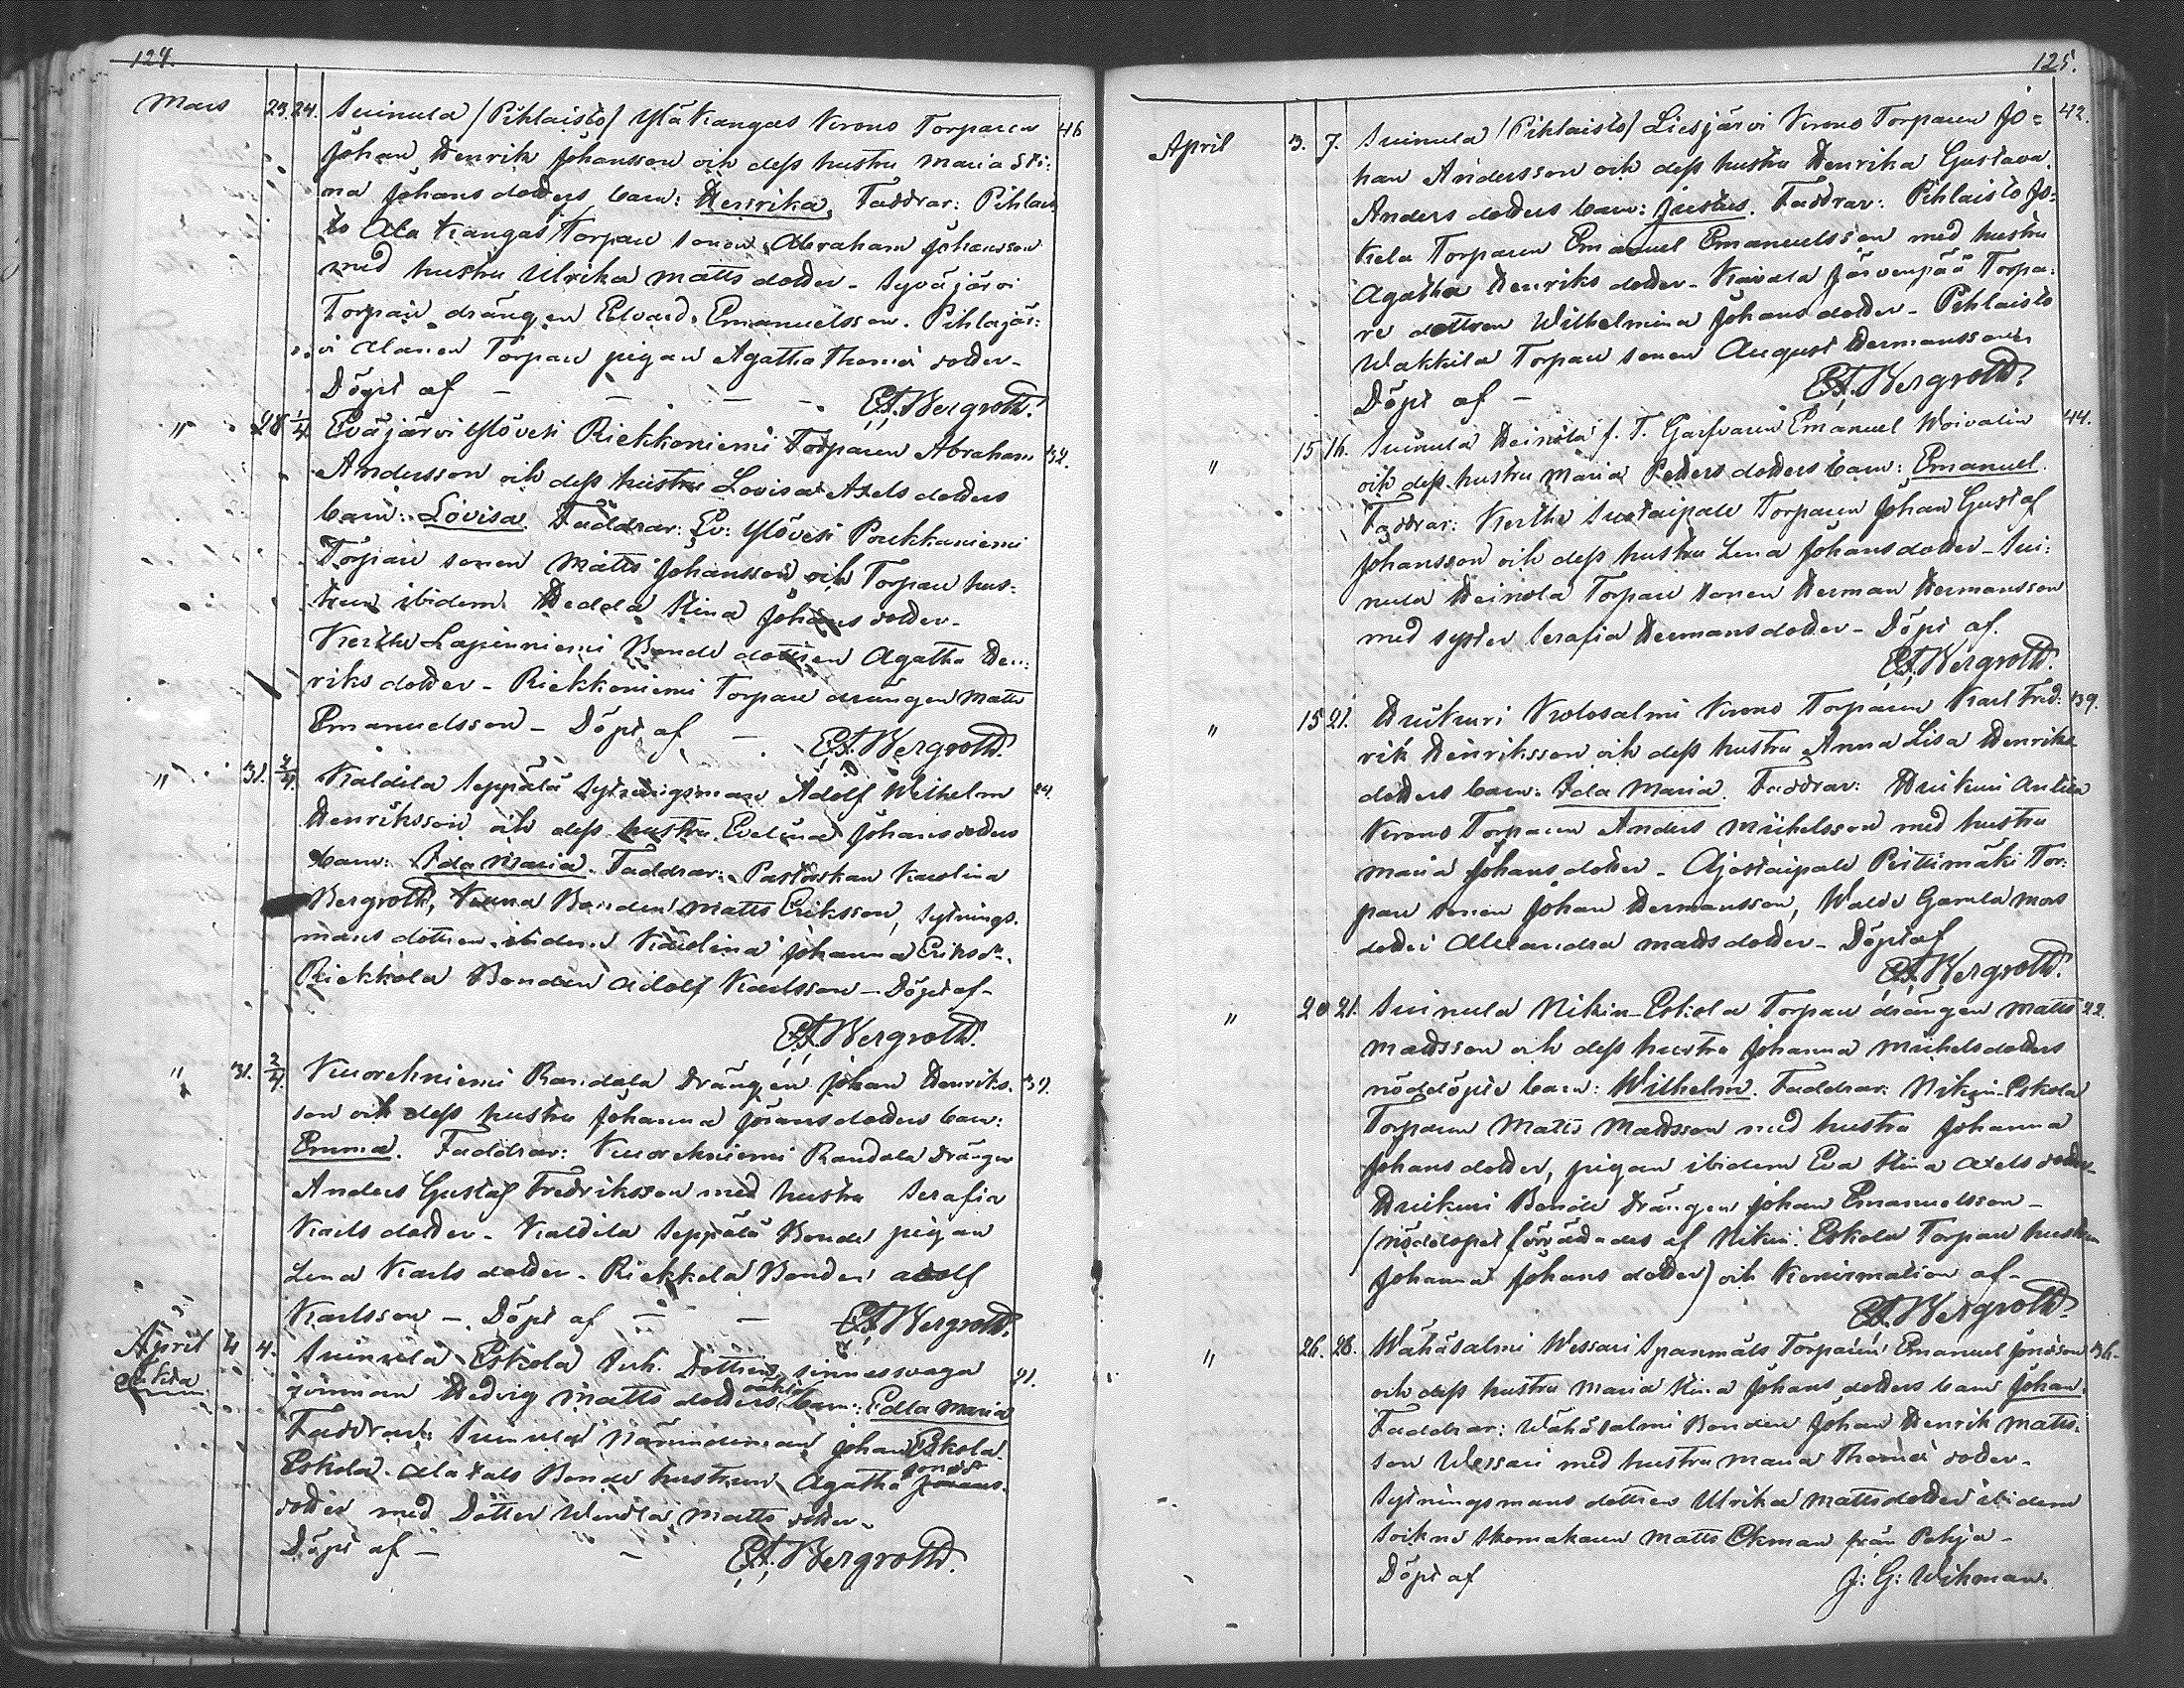 124.
Mars 23. 24. Suinula /Pihlaisto/ Ylä Kangas Krono Torparen 46
Johan Henrik Johansson och dess hustru Maria Sti:
na Johansdotters barn: Henrika. Faddrar: Pihlais
to Ala Kangas Torpare sonen Abraham Johansson
med hustru Ulrika Mattsdotter - Syväjärvi
Torpare drängen Edvard Emanuelsson. Pihlajär:
vi Alanen Torpare pigan Agatha Thomæ dotter -
Döpt af - - - - E.A. Bergroth.
" 28 1/4 Eväjärvi Ylövesi Riekkoniemi Torparen Abraham 32.
Andersson och dess hustru Lovisa Axelsdotters
barn: Lovisa Faddrar: Ev: Ylövesi Poukkaniemi
Torpare sonen Matts Johansson och Torpare hus:
trun ibidem Hedda Stina Johansdotter -
Kertte Lapinniemi Bonde dottren Agatha Hen:
riksdotter - Riekkoniemi Torpare drängen Matts
Emanuelsson - Döpt af - E.A. Bergroth.
" 31. 2/4. Kaldila Seppälä Sytningsman Adolf Wilhelm 24.
Henriksson och dess hustru Evelina Johansdotters
barn: Ida Maria. Faddrar: Pastorskan Karolina
Bergroth, Bonden Matts Eriksson, Sytnings.
mans dottren ibidem Karolina Johanna Eriksdr.
Riekkola Bonden Adolf Karlsson - Döpt af -
E.A. Bergroth.
" 31. 2/4. Kuorehniemi Randala Drängen Johan Henriks. 31.
son och dess hustru Johanna Göransdotters barn:
Emma. Faddrar: Kuorehniemi Randala Drängen
Anders Gustaf Fredriksson med hustru Serafia
Karlsdotter - Kaldila Seppälä Bonde pigan
Lena Karlsdotter - Riekkola Bonden Adolf
Karlsson - Döpt af - - E.A. Bergroth.
April 4 4. Suinula Eskola dottren sinnessvaga 21.
qvinnan Hedvig Mattsdotters oäkta barn: Edla Maria
Faddrar: Suinula Nämndeman Johan Eskola
Eskola. Alatals Bonde hustrun Agatha Jonæ
dotter med Dotter Wendla Mattsdotter -
Döpt af - - E.A. Bergroth.
125.
April 3. 7. Suinula /Pihlaisto/ Liesjärvi Krono Torparen Jo= 42.
han Andersson och dess hustru Henrika Gustava
Andersdotters barn: Justus. Faddrar: Pihlaisto Jo=
kela Torparen Emanuel Emanuelsson med hustru
Agatha Henriksdotter - Kaivola Järvenpää Torpa:
re dottren Wilhelmina Johansdotter - Pihlaisto
Wakkila Torpare sonen August Hermansson
Döpt af - E.A. Bergroth.
" 15 16. Suinula Heinola f. T. Garfvaren Emanuel Woivalin 44.
och dess hustru Maria Pettersdotters barn: Emanuel.
Faddrar: Kertte Suotaipale Torparen Johan Gustaf
Johansson och dess hustru Lena Johansdotter - Sui:
nula Heinola Torpare sonen Herman Hermansson
med syster Serafia Hermansdotter - Döpt af.
E.A. Bergroth.
" 15 21. Huikuri Kolosalmi Krono Torparen Karl Fred: 39.
rik Henriksson och dess hustru Anna Lisa Henriks
dotters barn: Ida Maria. Faddrar: Huikuri Antila
Krono Torparen Anders Mickelsson med hustru
Maria Johansdotter - Ajostaipale Perttimäki Tor:
pare sonen Johan Hermansson, Walde Garala mors
dotter Alexandra Mattsdotter - Döpt af
E.A. Bergroth.
" 20 21. Suinula Nikin-Eskola Torpare drängen Matts 22.
Mattsson och dess hustru Johanna Mickelsdotters
nöddöpte barn: Wilhelm. Faddrar: Nikin-Eskola
Torparen Matts Mattsson med hustru Johanna
Johansdotter, pigan ibidem Eva Stina Axelsdotter -
Huikuri Bonde Drängen Johan Emanuelsson -
(nöddopet förrättades af Nikin Eskola Torpare hustrun
Johanna Johansdotter) och Konfirmation af -
E.A. Bergroth.
" 26. 28. Wähäsalmi Wessari Spanmåls Torparen Emanuel Jonasson 36.
och dess hustru Maria Stina Johansdotters barn Johan
Faddrar: Wähäsalmi Bonden Johan Henrik Matts.
son Wessari med hustru Maria Thomæ dotter -
Sytningsmans dottren Ulrika Mattsdotter ibidem
Sockne Skomakaren Matts Ekman från Pohja -
Döpt af J: G: Wikman.